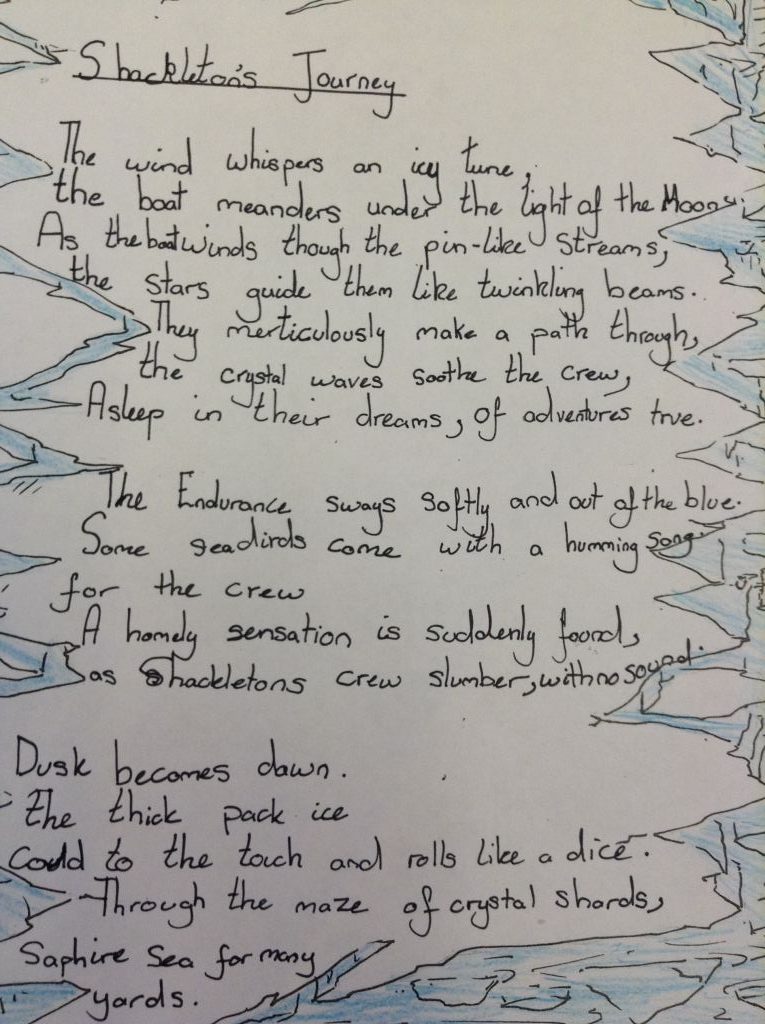 Shackleton's Journey
The wind whispers an icy tune,
the boat meanders under the light of the Moon.
As the boat winds though the pin-like streams,
the stars guide them like twinkling beams.
They merticulously make a path through,
the crystal waves soothe the crew,
Asleep in their dreams, of adventures true.
The Endurance sways softly and out of the blue.
Some seadirds come with a humming song
for the crew
A homely sensation is suddenly found,
as Shackletons crew slumber, with no sound.
Dusk becomes dawn.
The thick pack ice
Could to the touch and rolls like a dice.
Through the maze of crystal shards,
Saphire Sea for many
yards.